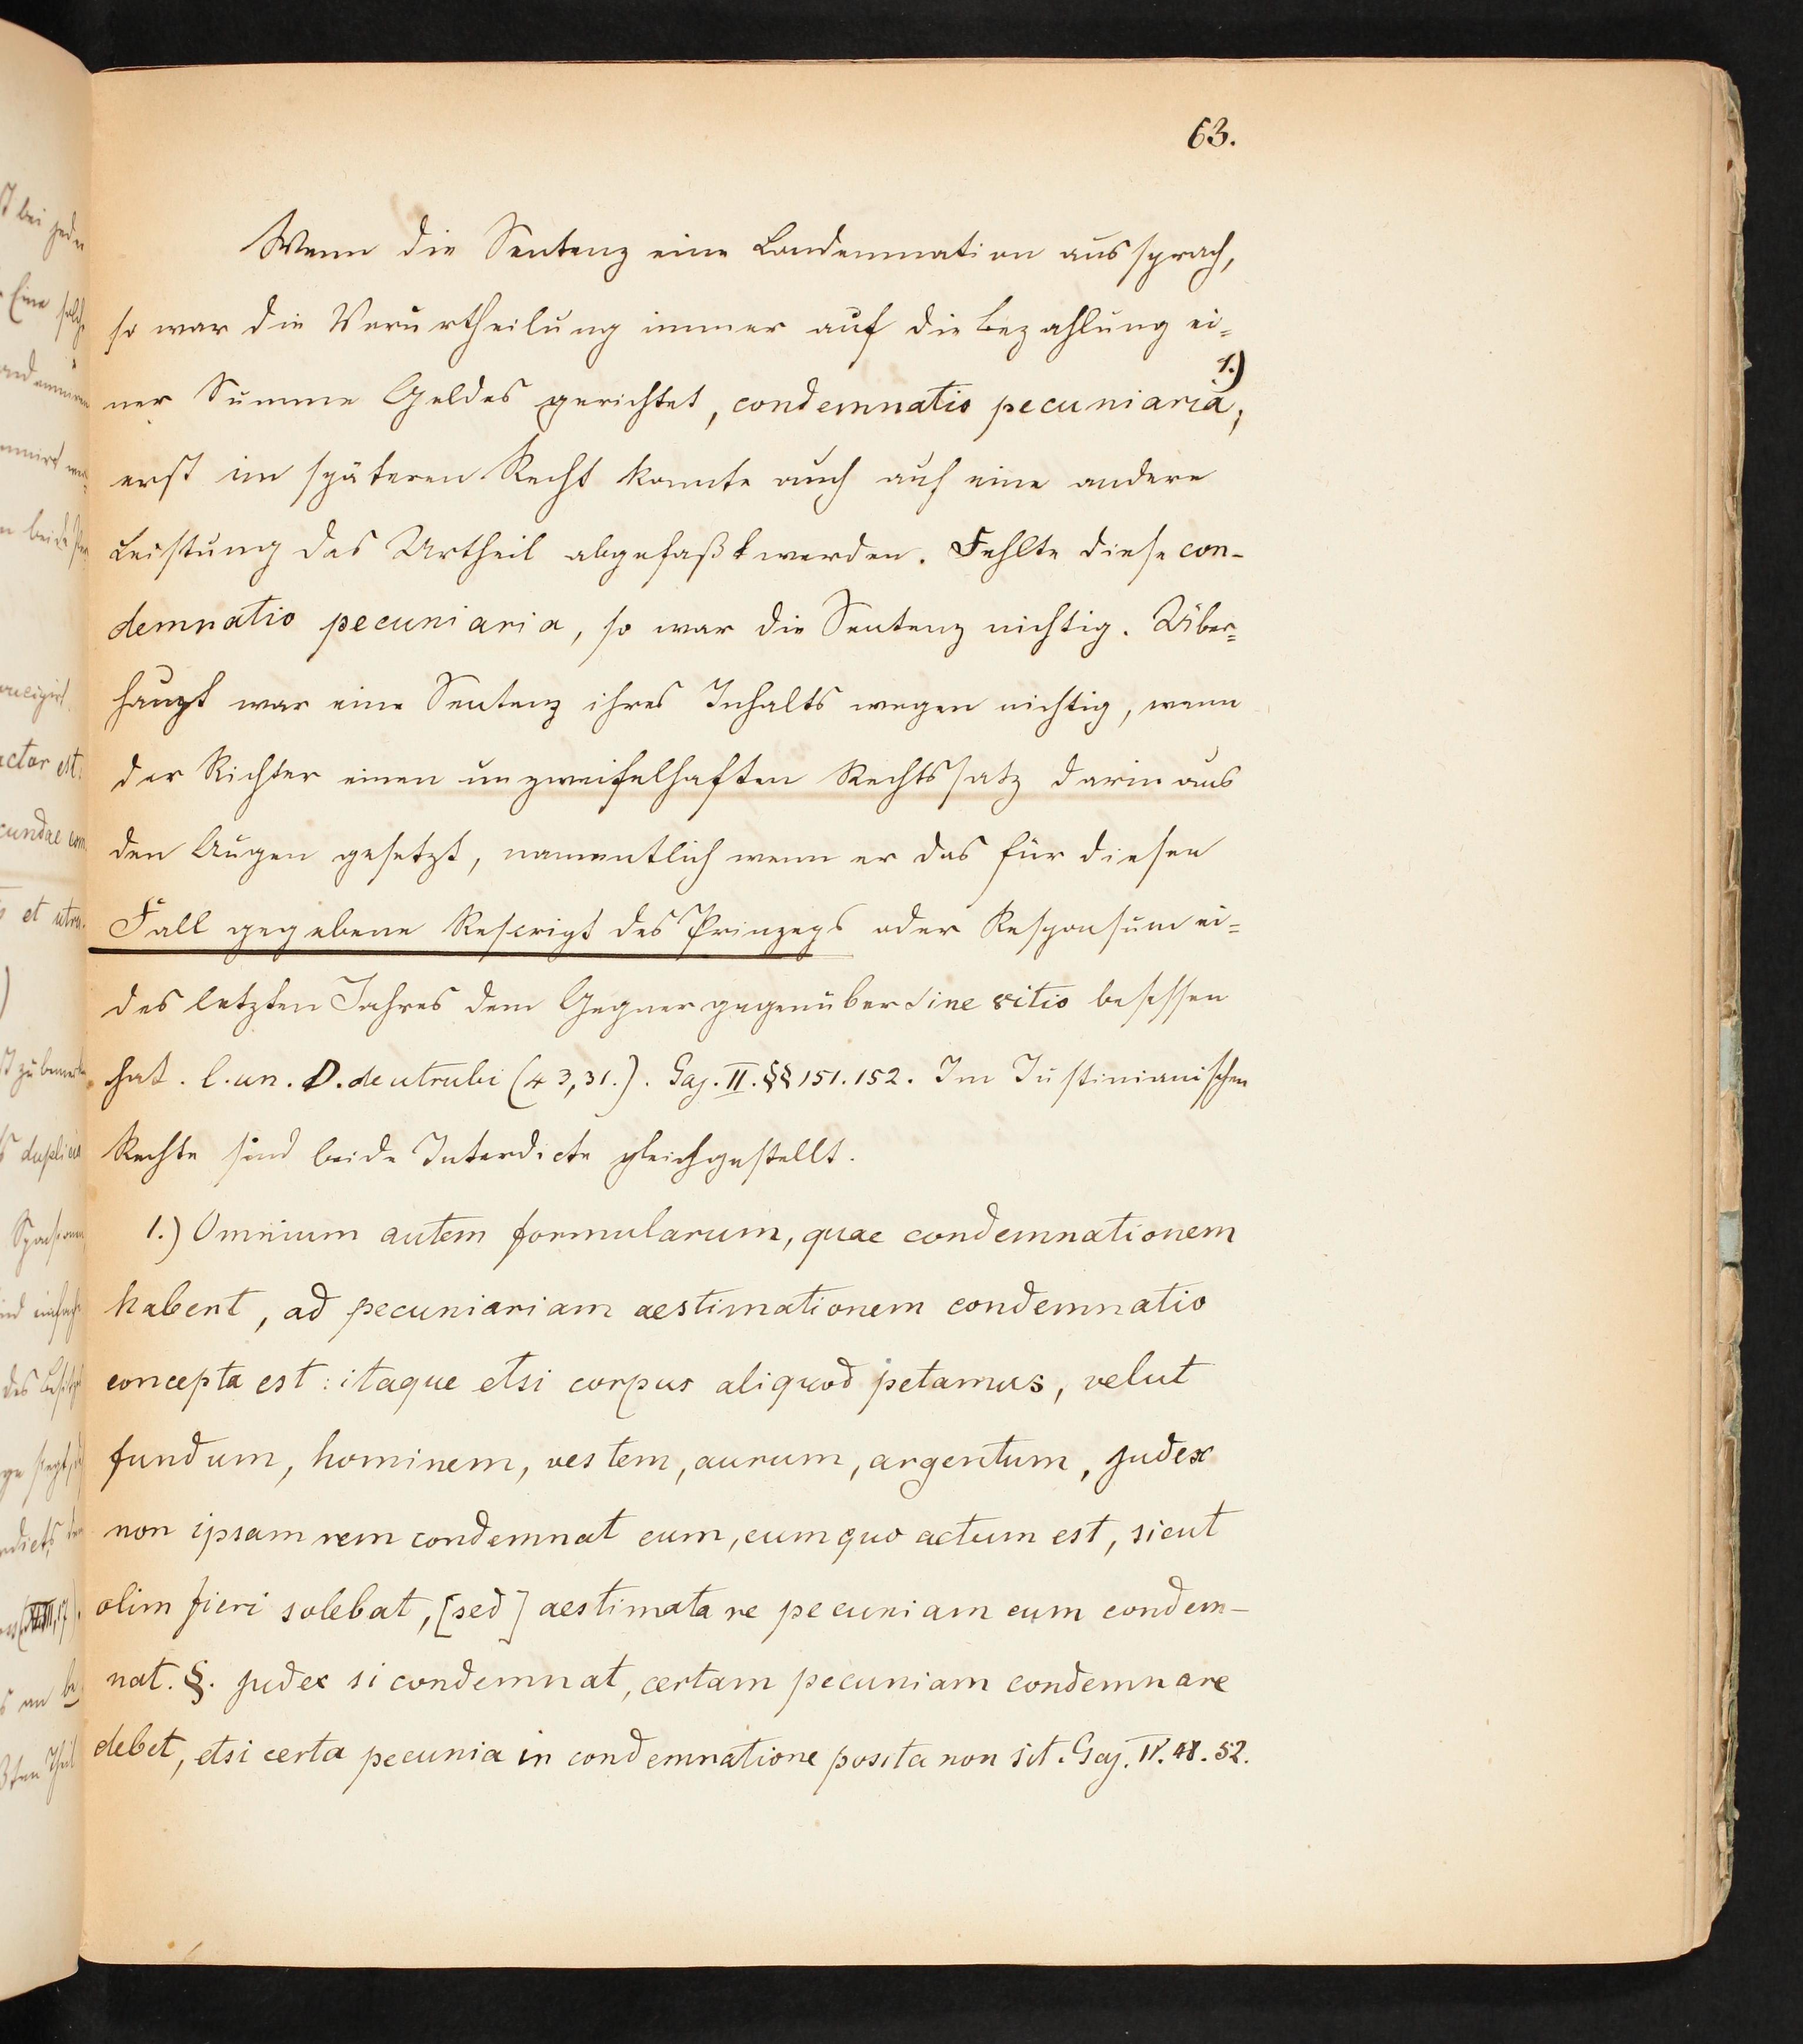 63.
Wenn die Sentenz eine Condemnation aussprach,
so war die Verurtheilung immer auf die Bezahlung ei=
ner Summe Geldes gerichtet, condemnatio pecuniaria, 1.)
erst im späteren Recht konnte auch auf eine andere
Leistung das Urtheil abgefaßt werden. Fehlte diese con-
demnatio pecuniaria, so war die Sentenz nichtig. Über=
haupt war eine Sentenz ihres Inhalts wegen nichtig, wenn
der Richter einen unzweifelhaften Rechtssatz darin aus
den Augen gesetzt, namentlich wenn er das für diesen
Fall gegebene Rescript des Prinzeps oder Responsum ei=
des letzten Jahres dem Gegner gegenüber sine vitio besessen
hat. l. un. D. de utrubi (43,31.). Gaj. II. §§ 151. 152. Im Justinianischen
Rechte sind beide Interdicte gleichgestellt.
1.) Omnium autem formularum, quae condemnationem
habent, ad pecuniariam aestimationem condemnatio
concepta est: itaque etsi corpus aliquod petamus, velut
fundum, hominem, vestem, aurum, argentum, judex
non ipsam rem condemnat eum, cum quo actum est, sicut
olim fieri solebat, [sed] aestimata re pecuniam eum condem-
nat. §. judex si condemnat, certam pecuniam condemnare
debet, etsi certa pecunia in condemnatione posita non sit. Gaj. IV. 48. 52.